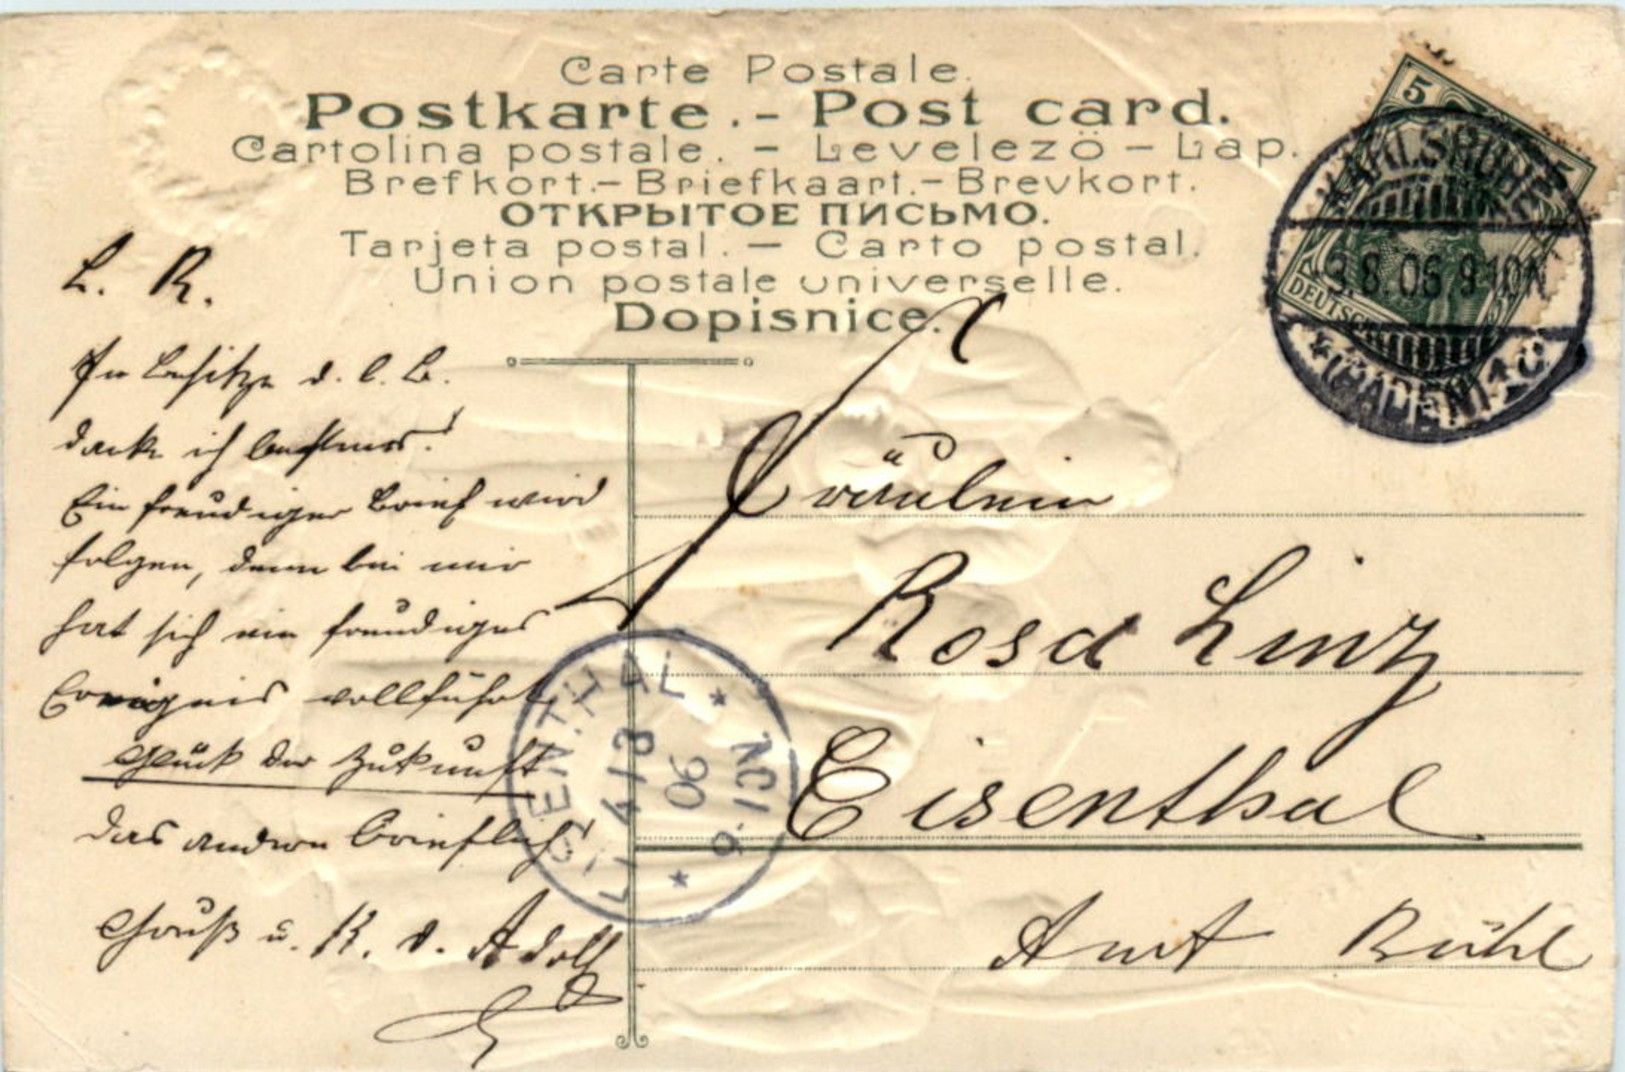 Carte Postale.
Postkarte.- Post card.
Cartolina postale. - Levelezö - Lap.
Brefkort.- Briefkaart.- Brevkort.
ОТКРЫТОЕ ПИСЬМО.
Tarjeta postal. - Carto postal.
Union postale universelle.
Dopisnice.
5
5
DEUTSCHES
KARLSRUHE
3.8.06 9-10N
* (BADEN) 1
L. R.
In Besitze d. l. B.
danke ich bestens!
Ein freudiger Brief wird
folgen, denn bei mir
hat sich ein freudiges
Ereignis vollführt
Glück der Zukunft
das andere brieflich!
Gruß u. K. d. Adolf
Fräulein
Rosa Linz
Eisenthal
Amt Bühl
EISENTHAL
4/8
06
9-10N